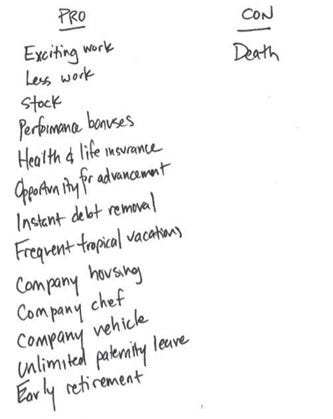 PRO
Exciting work
Less work
Stock
Performance bonuses
Health & life insurance
Opportunity for advancement
Instant debt removal
Frequent tropical vacations
Company housing
Company chef
Company vehicle
Unlimited paternity leave
Early retirement
CON
Death